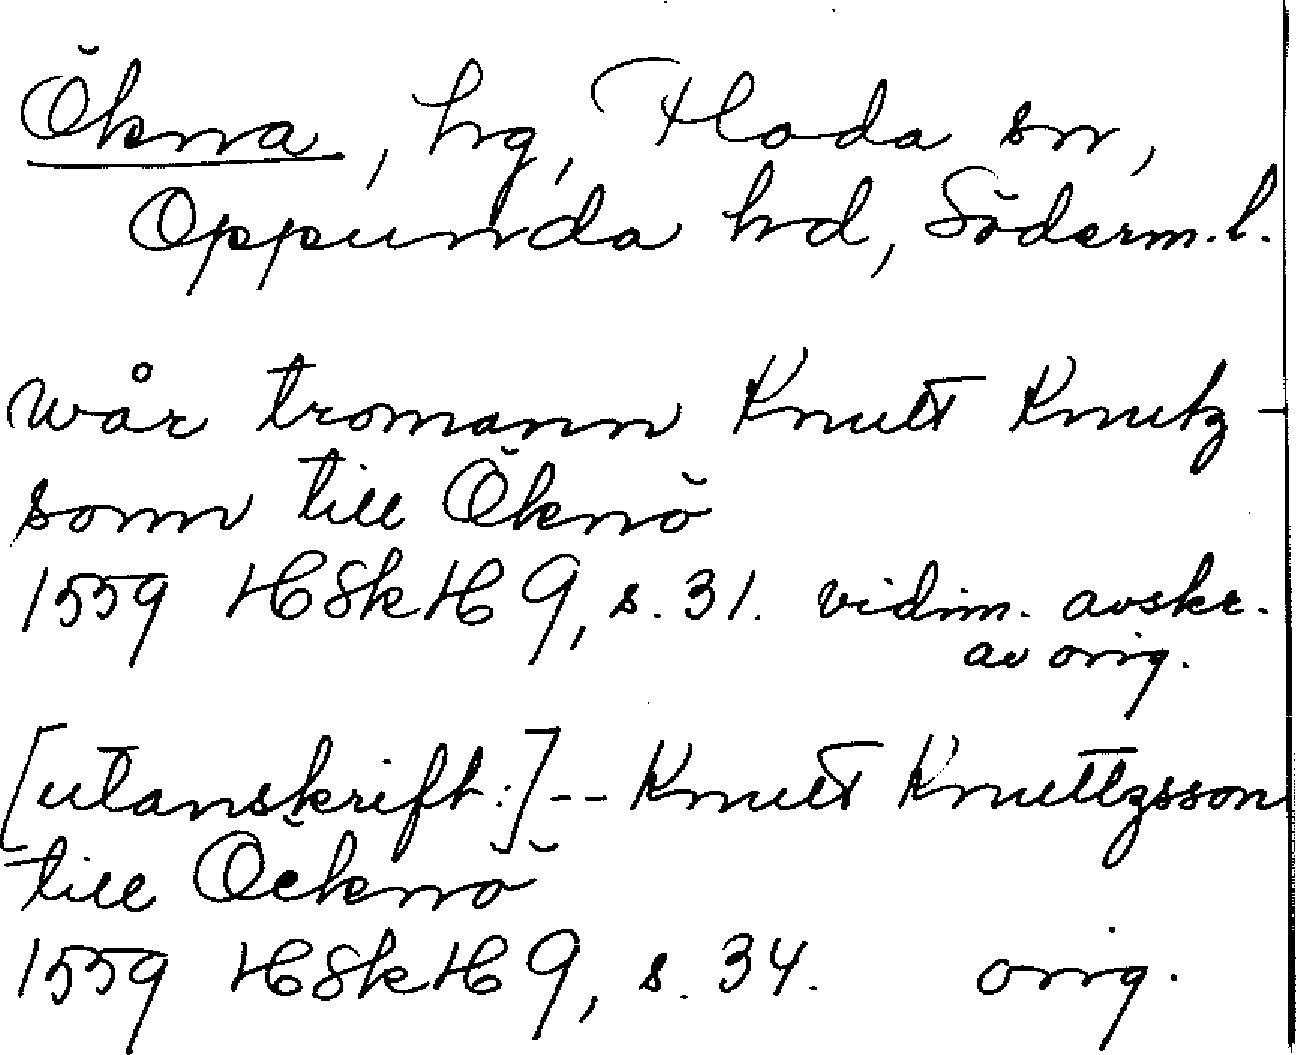 Ökna, hg, Floda sn,
Oppunda hd, Söderm.l.
wår tromann Knutt Knutz-
sonn till Öknö
1559 HSkH 9, s. 31. vidim. avskr.
av orig.
[utanskrift:] -- Knutt Knuttzsson
till Öcknö
1559 HSkH 9, s. 34. orig.